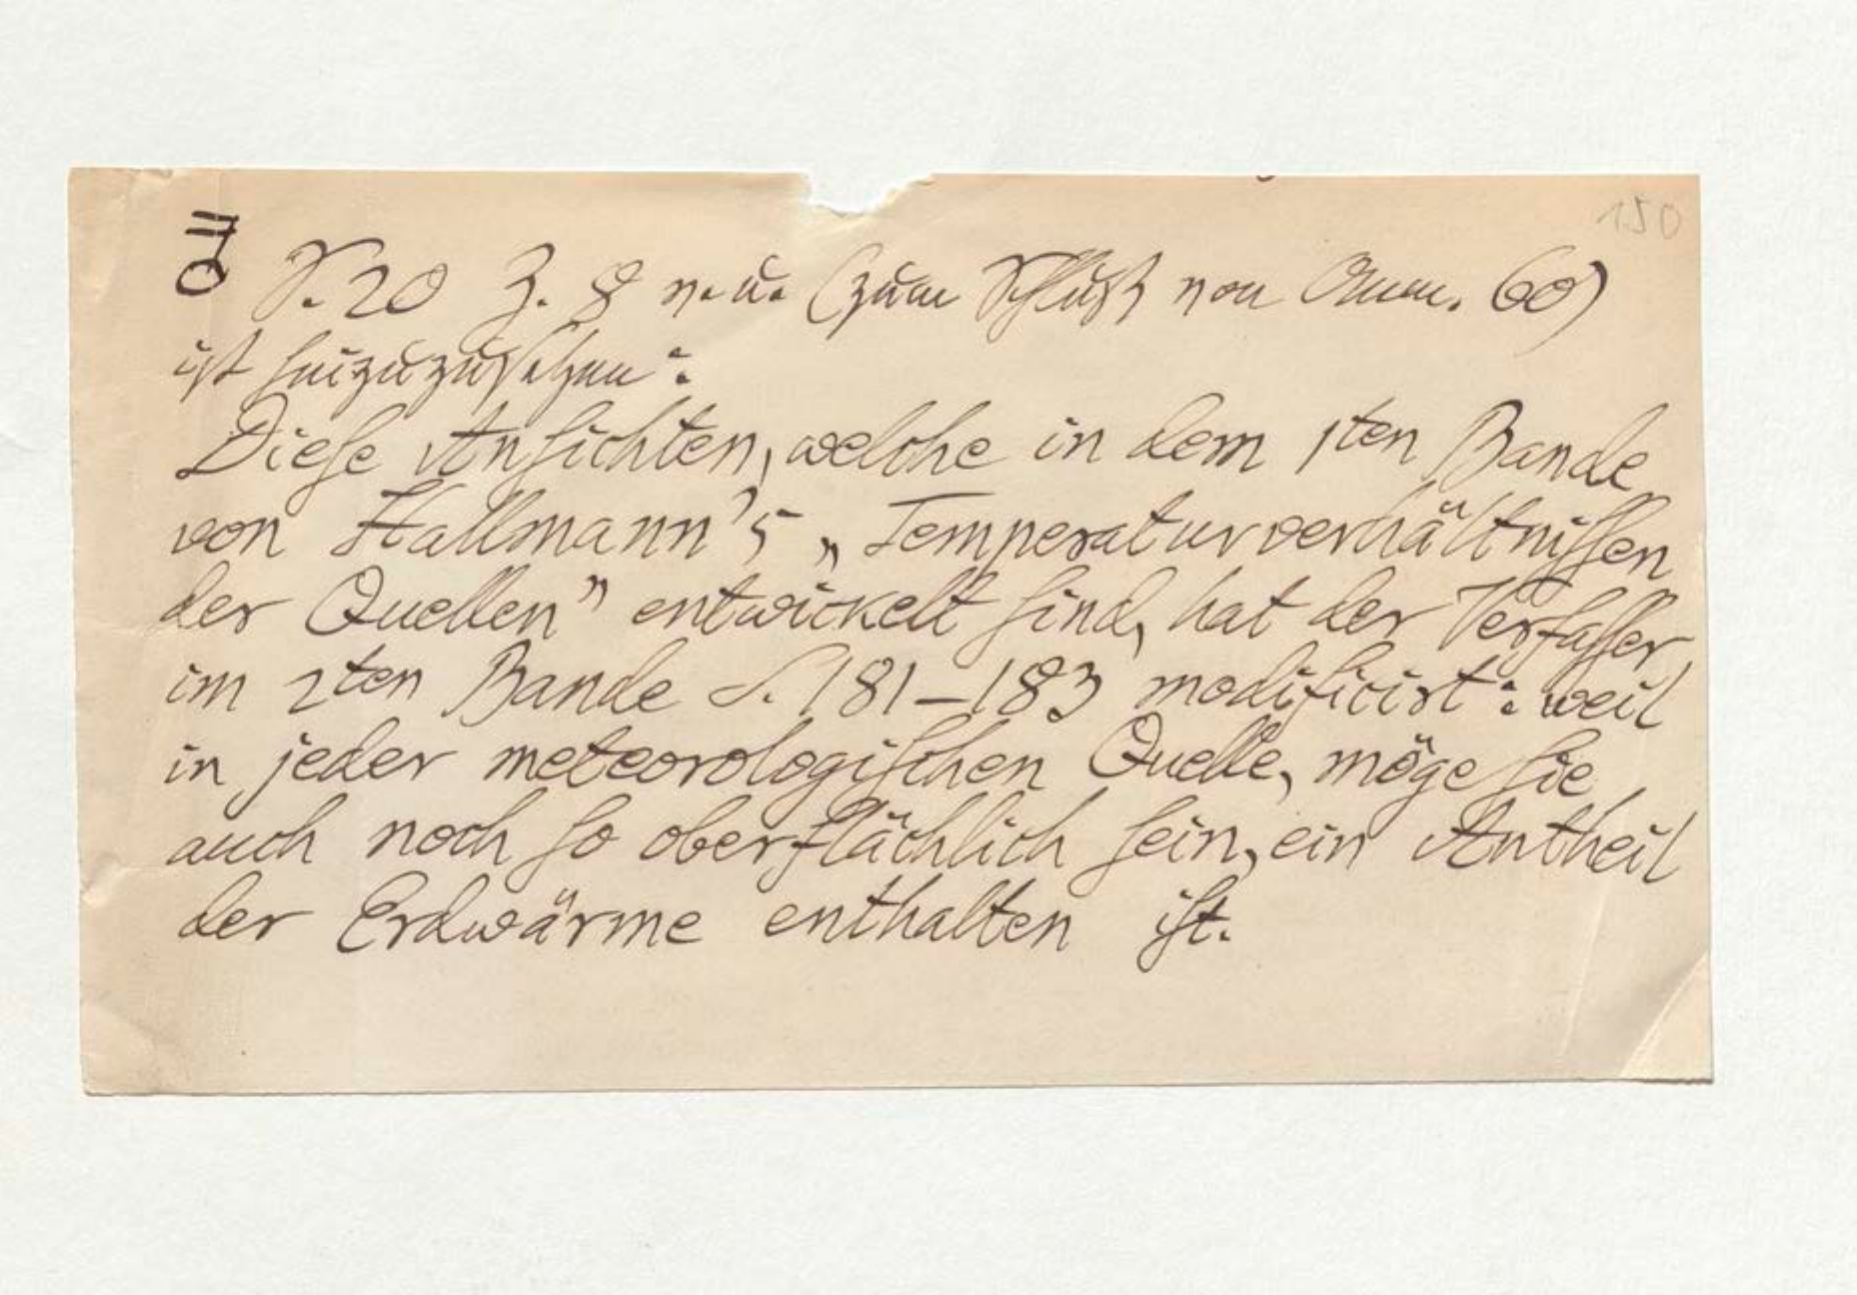 150
S. 20 Z. 8 v. u. (zum Schluß von Anm. 60)
ist hinzuzusetzen:
Dieſe Anſichten, welche in dem 1ten Bande
von Hallmann's „Temperaturverhältniſſen
der Quellen” entwickelt ſind, hat der Verfaſſer
im 2ten Bande S. 181–183 modificirt: weil
in jeder meteorologiſchen Quelle, möge ſie
auch noch ſo oberflächlich ſein, ein Antheil
der Erdwärme enthalten iſt.